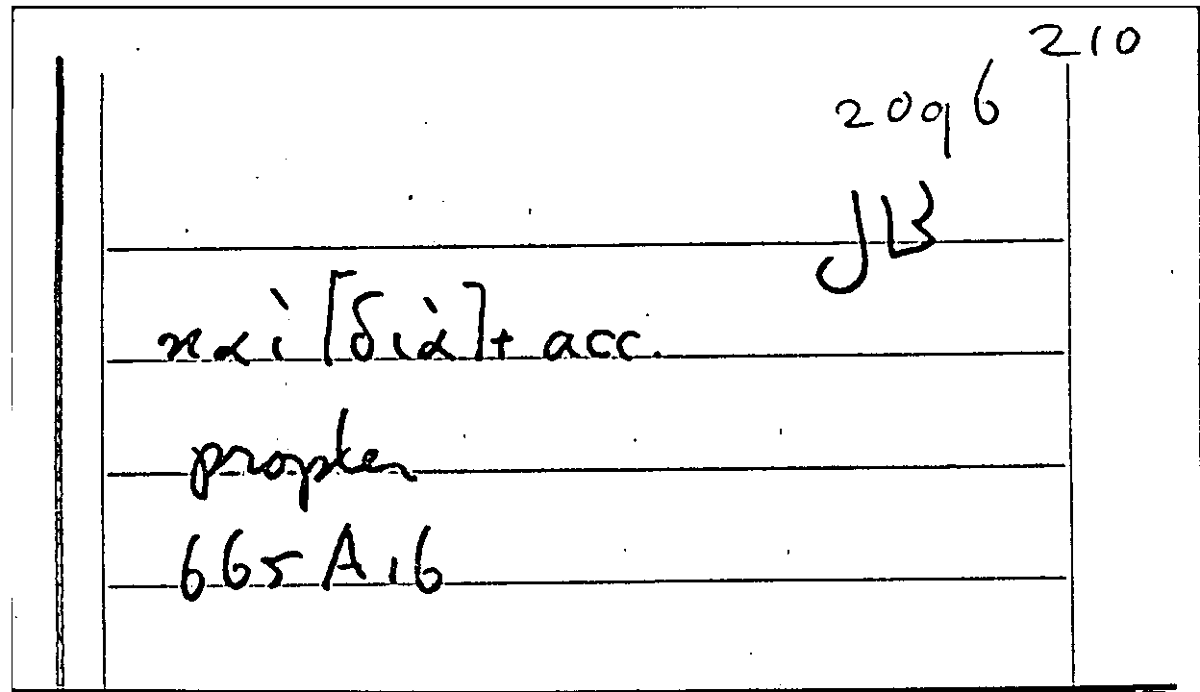 210
2096
JB
καὶ [διὰ] + acc.
propter
665 A 16